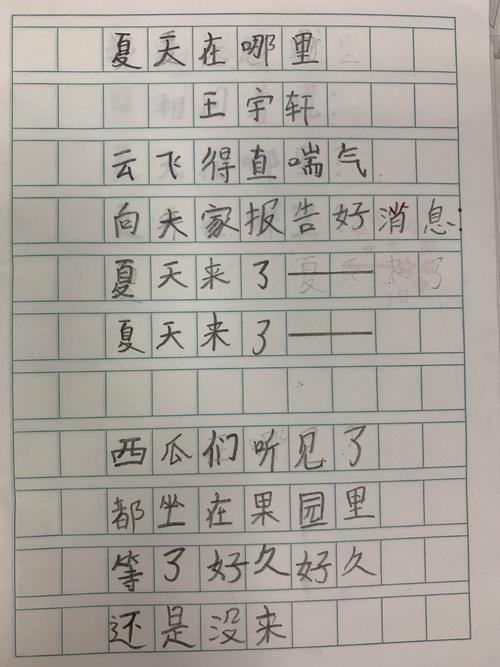 夏天在哪里
王宇轩
云飞得直喘气
向大家报告好消息:
夏天来了——
夏天来了——
西瓜们听见了
都坐在果园里
等了好久好久
还是没来